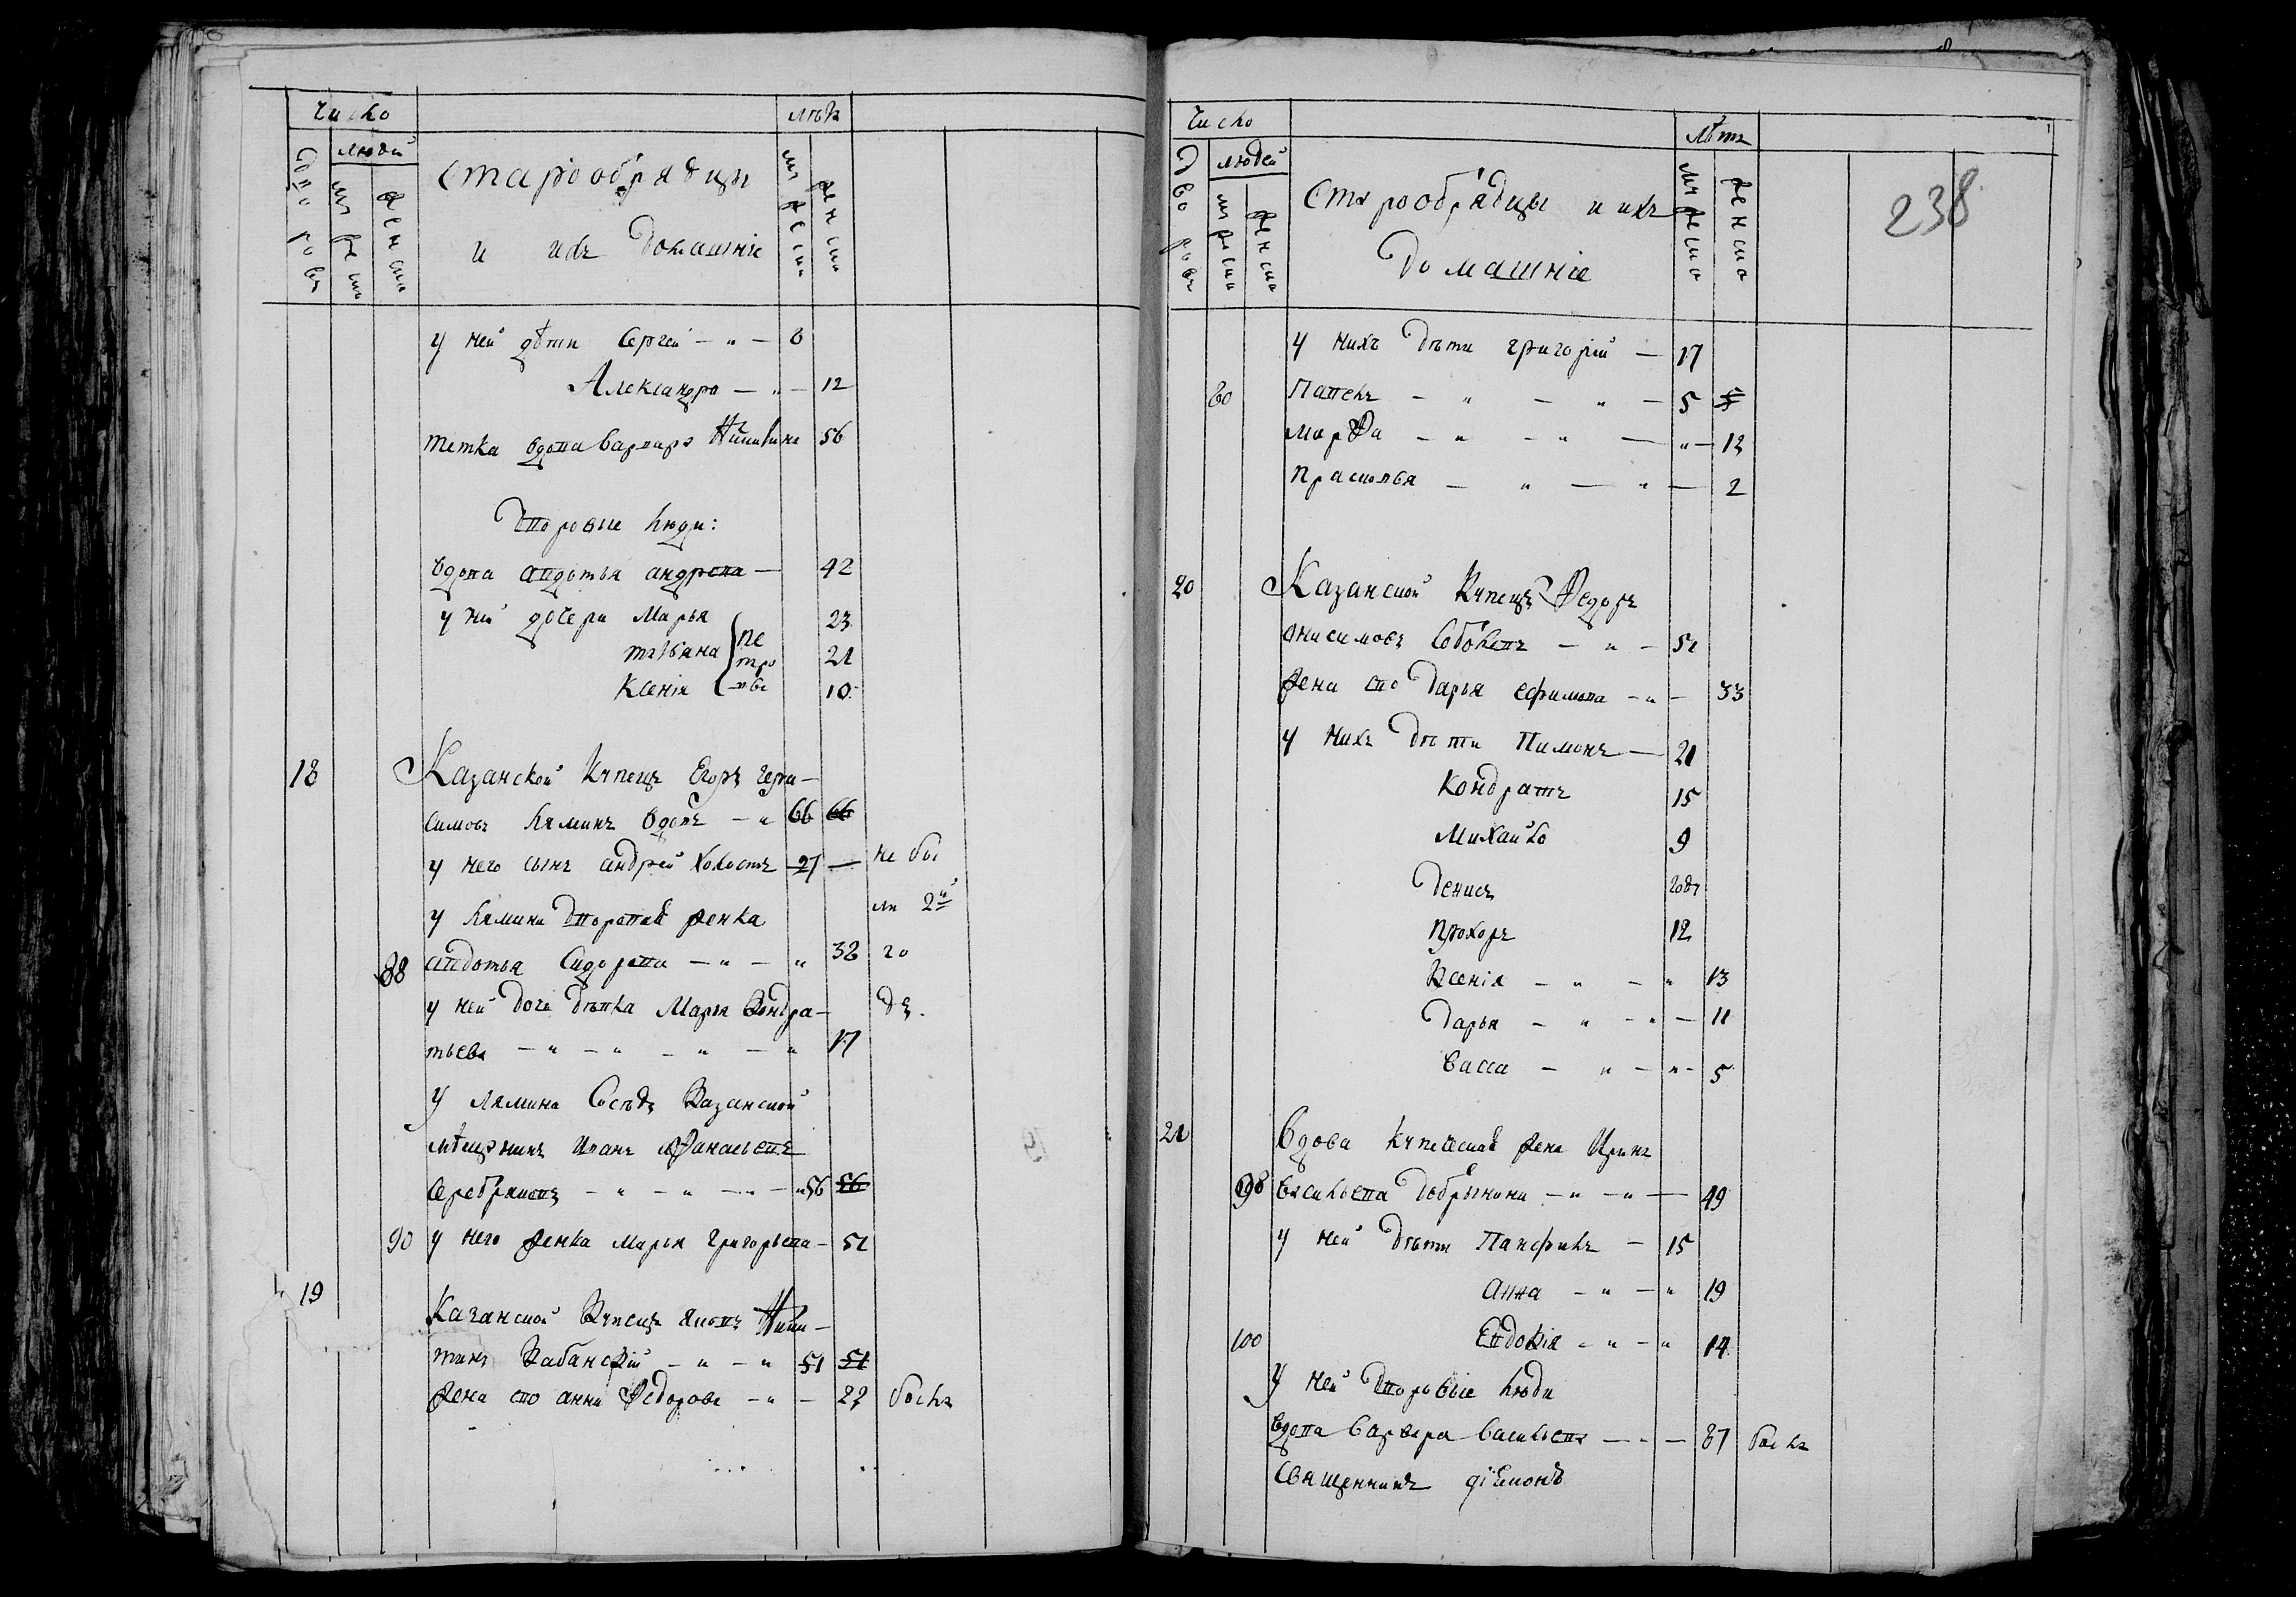 Число
лѣтъ
людей
дворовъ
мужеска
женска
старообрядцы
и ихъ домашніе
мужеска
женска
у ней дѣти Сергей — " — 8
Александра — " — 12
тетка вдова Варвара Никитина 56
Дворовые люди:
вдова авдотья андреева — 42
у ней дочери Марья 23
татьяна 21
Ксенія 10
петрова
18 Казанской Купецъ Егоръ Гера-
симовъ Ляминъ вдовъ — " 66 66
у него сынъ андрей холостъ 27 — не бы
у Лямина дворовая женка ли 2й
88 авдотья Сидорова — " — " 38 го
у ней дочь дѣвка Марья Кондра- дъ.
тьева — " — " — " — " 17
У Лямина Сосѣдъ Казанской
мѣщанинъ Иванъ Афанасьевъ
Серебряковъ — " — " — " — " 56 56
90 у него женка Марья Григорьева — 51
19
Казанской Купецъ Яковъ Ники-
тинъ Кабанскій — " — " 51 51
жена ево анна Федорова — " — 27 была
Число
лѣтъ
238
людей
дворовъ
мужеска
женска
старообрядцы и ихъ
домашніе
мужеска
женска
у нихъ дѣти григорій — 17
80 Павелъ — " — " — 5 5
Марфа — " — " — " — 12
Прасковья — " — " — 2
20 Казанской Купецъ Федоръ
Анисимовъ Соболевъ — " — 51
жена ево Дарья ефимова — " — 33
у нихъ дѣти Пимонъ — 21
Кондратъ 15
Михайло 9
Денисъ годъ
Прохоръ 12
Ксенія — " — " 13
Дарья — " — " — 11
Васса — " — " — 5
21 Вдова купеческая жена Ирина
98 Васильева Добрынина — " — " — 49
у ней дѣти Панфилъ — 15
Анна — " — " 19
100 Евдокія — " — " 14
у ней дворовые люди
вдова варвара васильева — " — 37 была
Священникъ